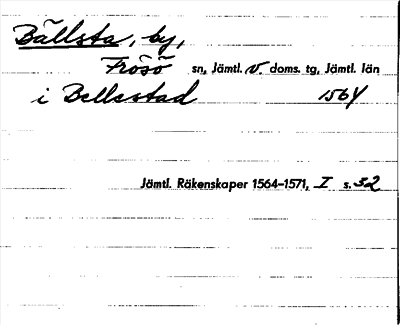 Bällsta, by,
Frösö sn, Jämtl. v. doms. tg, Jämtl. län
i Bellestad 1564
Jämtl. Räkenskaper 1564–1571, I s. 32